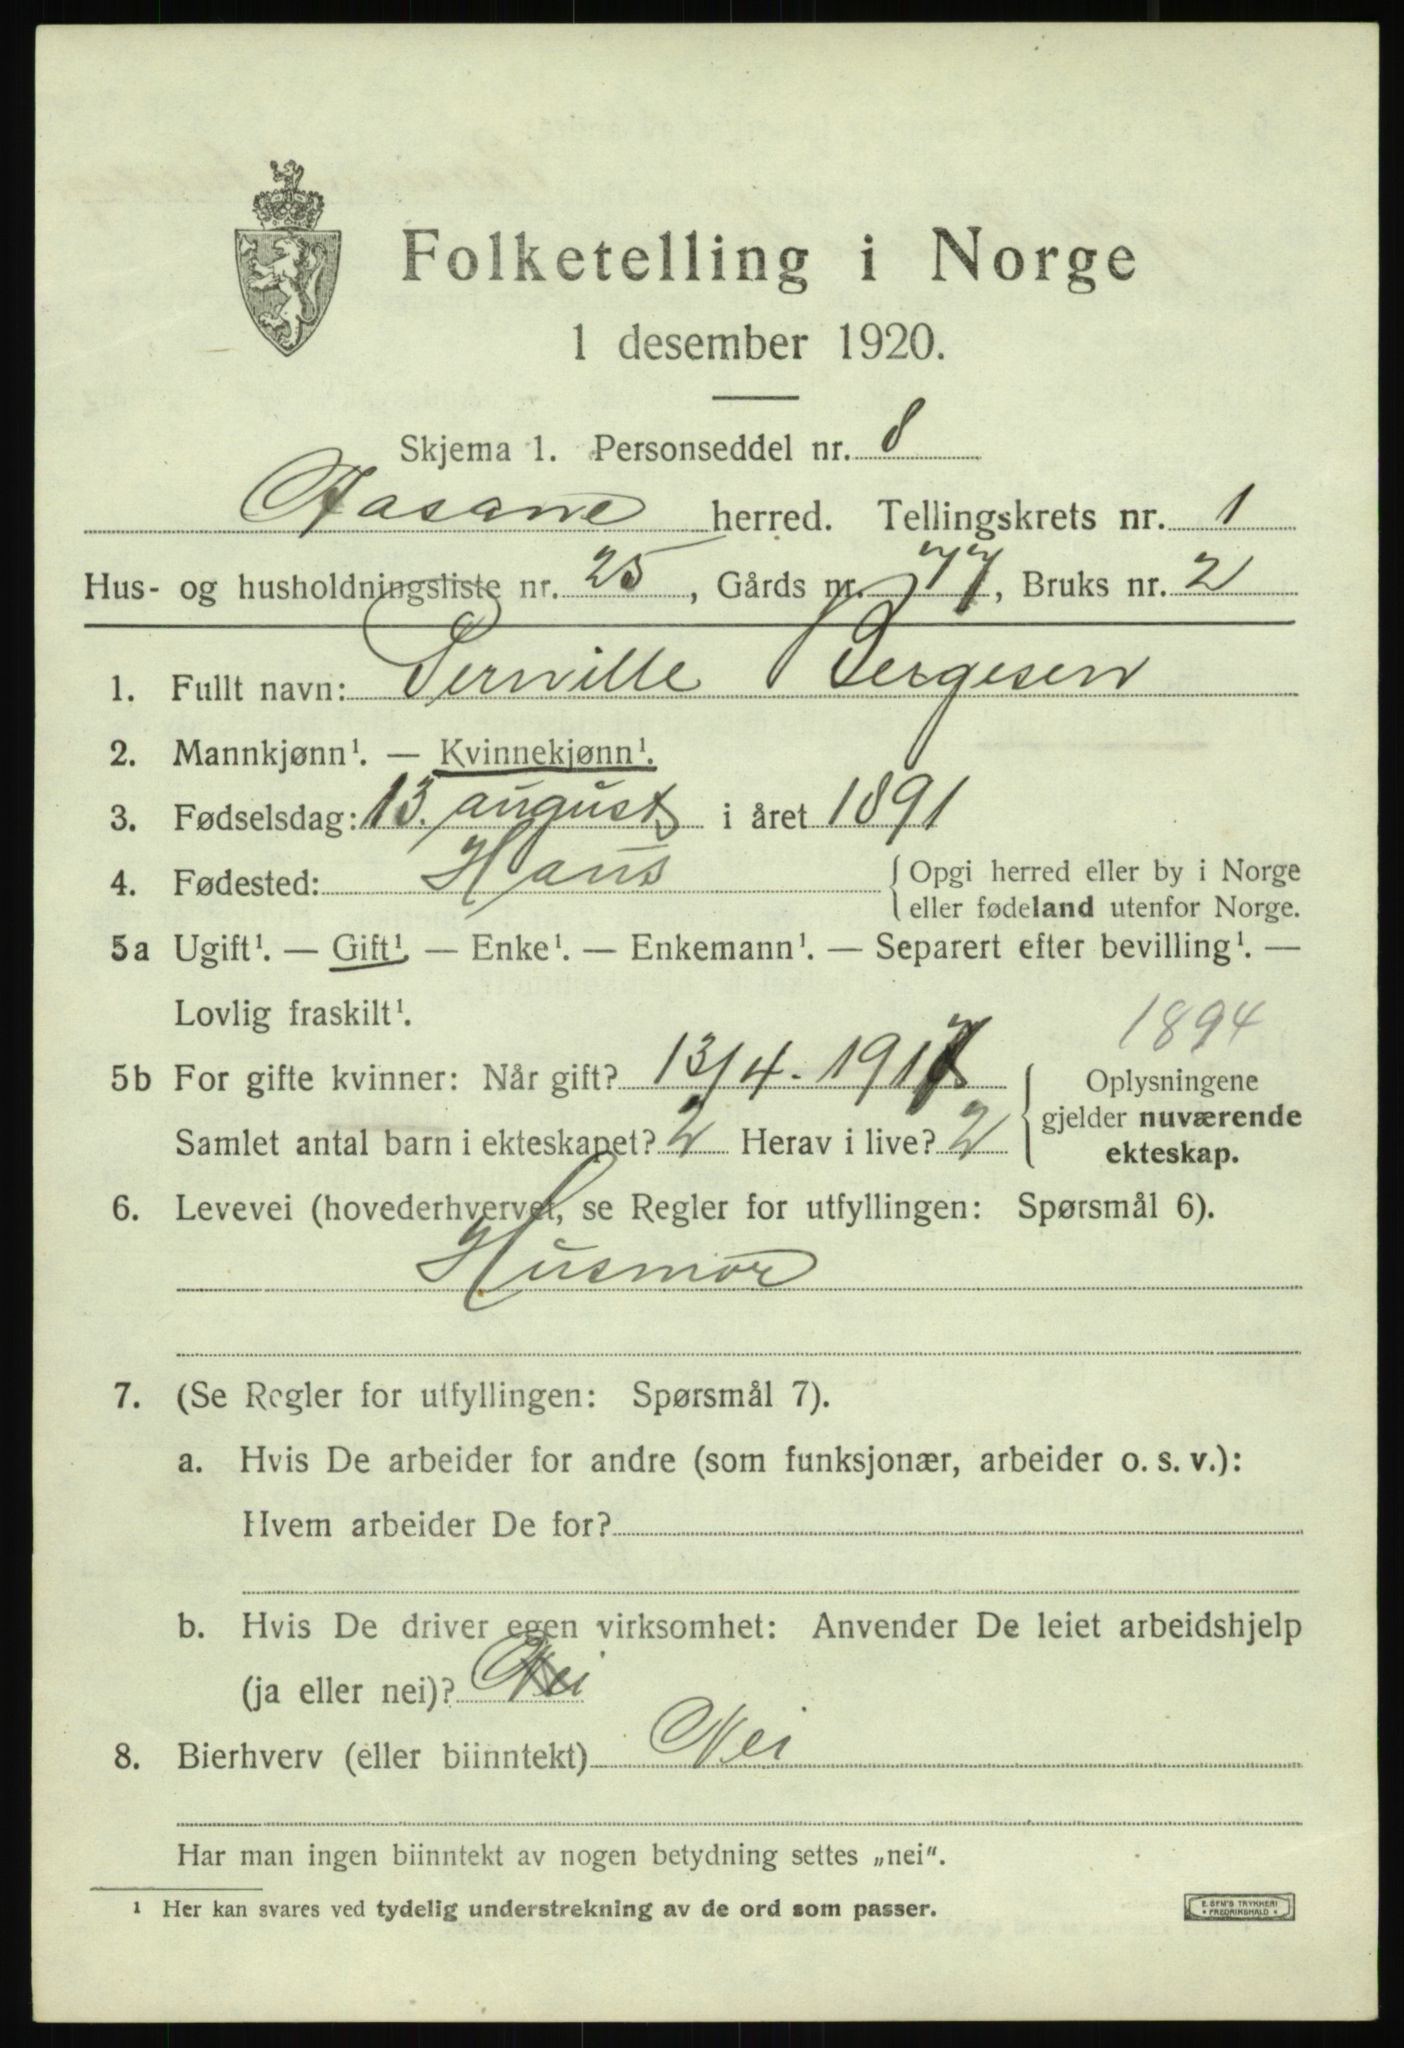 Folketelling i Norge
1 desember 1920.
Skjema 1. Personseddel nr. 8
Aasane herred. Tellingskrets nr. 1
Hus- og husholdningsliste nr. 25, Gårds nr. 77, Bruks nr. 2
1. Fullt navn: Pernille Bergesen
2. Mannkjønn¹. — Kvinnekjønn¹.
3. Fødselsdag: 13. august i året 1891
4. Fødested: Haus { Opgi herred eller by i Norge
eller fødeland utenfor Norge.
5a Ugift¹. — Gift¹. — Enke¹. — Enkemann¹. — Separert efter bevilling¹. —
Lovlig fraskilt¹.
1894
5b For gifte kvinner: Når gift? 13/4 - 1917 { Oplysningene
gjelder nuværende
Samlet antal barn i ekteskapet? 2 Herav i live? 2 ekteskap.
6. Levevei (hovederhvervet, se Regler for utfyllingen: Spørsmål 6).
Husmor
7. (Se Regler for utfyllingen: Spørsmål 7).
a. Hvis De arbeider for andre (som funksjonær, arbeider o. s. v.):
Hvem arbeider De for?
b. Hvis De driver egen virksomhet: Anvender De leiet arbeidshjelp
(ja eller nei)? Nei
8. Bierhverv (eller biinntekt) Nei
Har man ingen biinntekt av nogen betydning settes „nei".
¹ Her kan svares ved tydelig understrekning av de ord som passer.
E. SEM'S TRYKKERI
• FREDRIKSHALD •